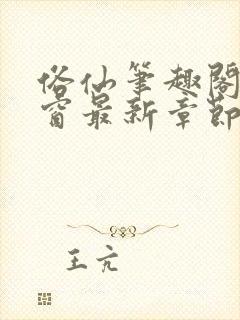 俗仙筆趣閣
窗最新章節
王亢